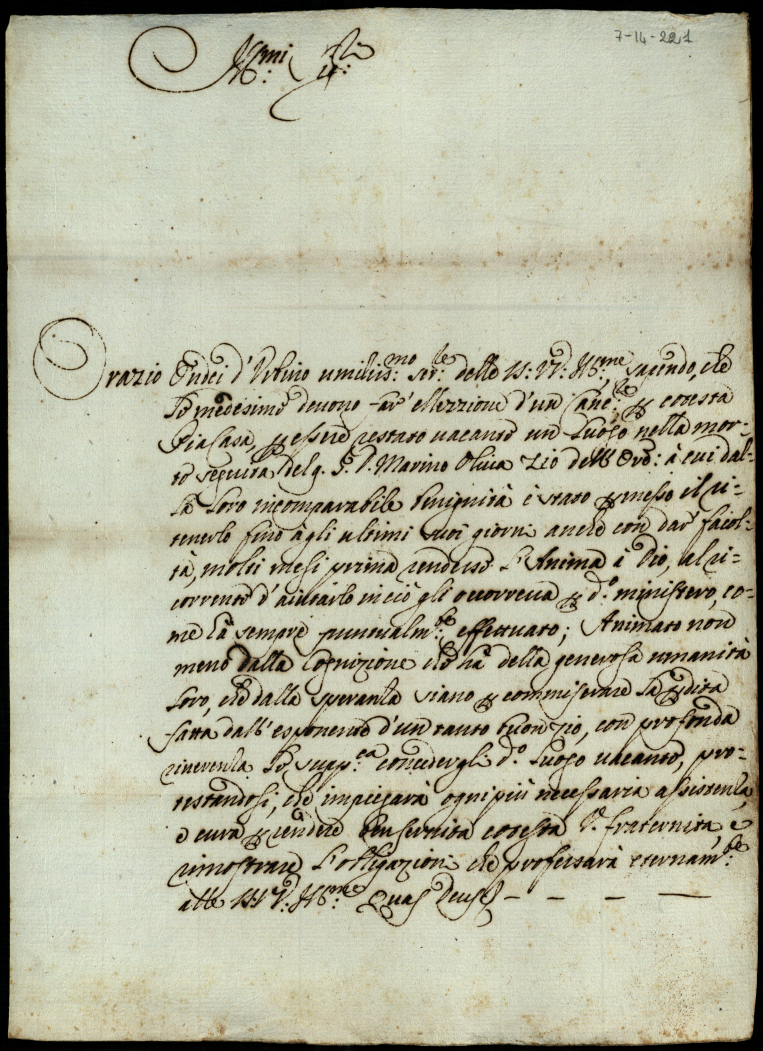 7-14-221
Ill:mi Sig:ri
Orazio Ondei d'Urbino umiliss:mo ser:re delle SS: VV: Ill:me, sapendo, che
le medesime devono far' ellezzione d'un Canc:re per cotesta
Pia Casa, per essere restato vacante un Luogo nella mor-
te seguita del q. S. D. Marino Oliva Zio dell' Ore: à cui dal-
la loro incomparabile benignità è stato permesso il ri-
tenerlo fino àgli ultimi suoi giorni anche con dar' facol-
tà, molti mesi prima rendesse l'Anima à Dio, al ri-
corrente d'aiutarlo in ciò gli occorreva per d.o ministero, co-
me hà sempre puntualm:te effettuato; Animato non
meno dalla Cognizione che hà della generosa umanità
loro, che dalla speranza siano per commiserare la perdita
fatta dall' esponente d'un tanto buon Zio, con profonda
riverenza le supp:ca concedergli d.o Luogo vacante, pro-
testandosi, che impiegarà ogni più necessaria assistenza,
e cura per rendere ben servita cotesta V. fraternita, e
rimostrare l'obligazioni che professarà eternam:te
alle SS: VV: Ill:me. Quas Deus &